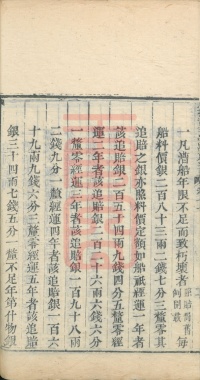 一凡漕船年限不足而致朽壞者
每
船料價銀二百八十三兩二錢七分三釐零其
追賠之銀亦照料價定額如船祇經運一年者
該追賠銀二百五十四兩九錢四分五釐零經
運二年者該追賠銀二百二十六兩六錢六分
一釐零經運三年者該追賠銀一百九十八兩
二錢九分一釐經運四年者該追賠銀一百六
十九兩九錢六分三釐零經運五年者該賠
銀三十四兩七錢五分 釐不足年第什物銀